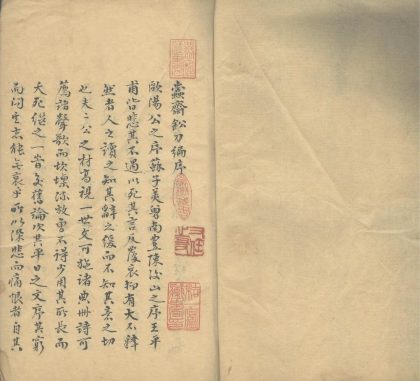 蠹齋鉛刀編序
歐陽公之序蘇子美曾南豐陳後山之序王平
甫皆悲其不遇以死其言反覆哀抑有大不釋
然者人之讀之知其辭之復而不知其意之切
也夫二公之材高視一世文可施諸典冊詩可
薦諸聲歌而坎壈流放曾不得少用其所長而
夭死繼之一旦友舊論次其平日之文序其窮
而閔其志能無哀乎所以深悲而痛恨者自其